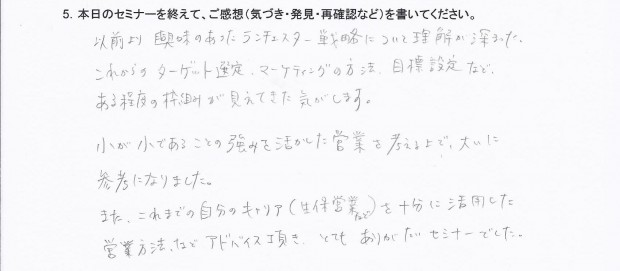 5. 本日のセミナーを終えて、ご感想（気づき・発見・再確認など）を書いてください。
以前より興味のあったランチェスター戦略について理解が深まった。
これからのターゲット選定、マーケティングの方法、目標設定など、
ある程度の枠組みが見えてきた気がします。
小が小であることの強みを活かした営業を考える上で、大いに
参考になりました。
また、これまでの自分のキャリア（生保営業など）を十分に活用した
営業方法、などアドバイス頂き、とてもありがたいセミナーでした。